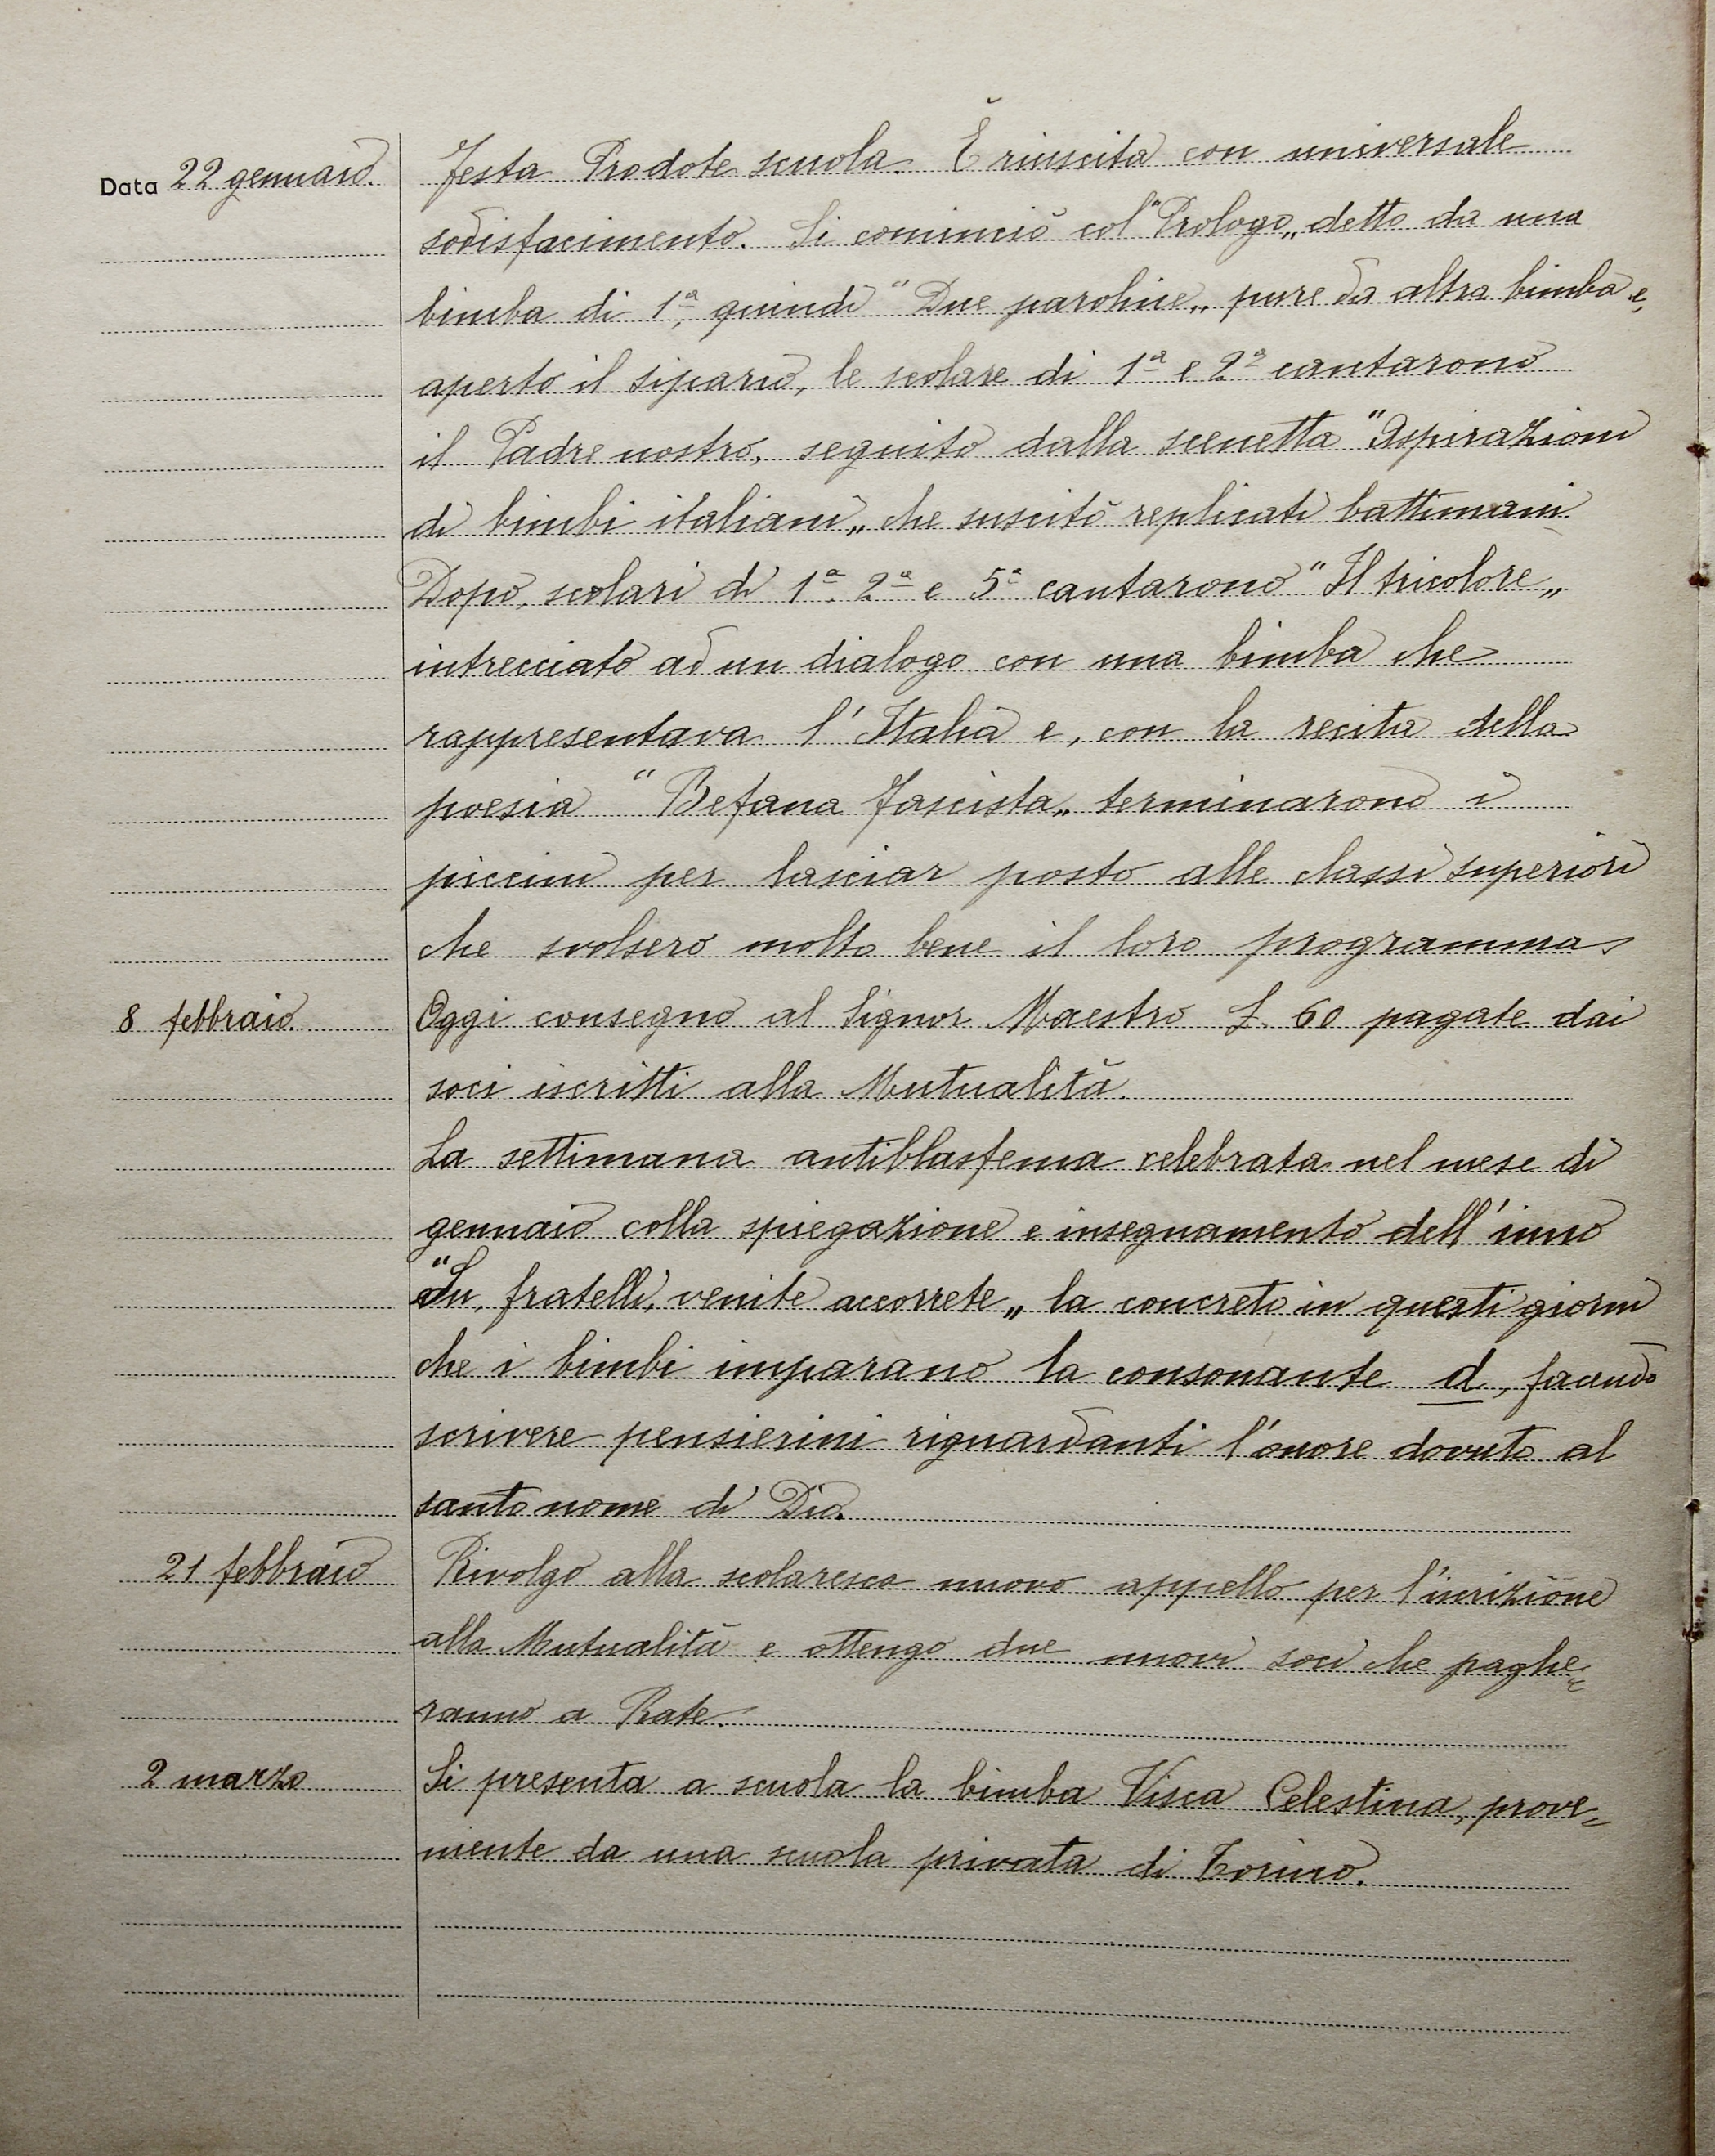 Data 22 gennaio. Festa Prodote scuola. È riuscita con universale
sodisfacimento. Si cominciò col "Prologo„ detto da una
bimba di 1ª, quindi "Due paroline„ pure da altra bimba e,
aperto il sipario, le scolare di 1ª e 2ª cantarono
il Padre nostro, seguito dalla scenetta "Aspirazioni
di bimbi italiani„ che suscitò replicati battimani.
Dopo, scolari di 1ª. 2ª e 5ª cantarono "Il tricolore„
intrecciato ad un dialogo con una bimba che
rappresentava l'Italia e, con la recita della
poesia "Befana Fascista„ terminarono i
piccini per lasciar posto alle classi superiori
che svolsero molto bene il loro programma
8 febbraio. Oggi consegno al Signor Maestro £. 60 pagate dai
soci iscritti alla Mutualità.
La settimana antiblasfema celebrata nel mese di
gennaio colla spiegazione e insegnamento dell'inno
"Su, fratelli, venite accorrete„ la concreto in questi giorni
che i bimbi imparano la consonante d, facendo
scrivere pensierini riguardanti l'onore dovuto al
santo nome di Dio.
21 febbraio Rivolgo alla scolaresca nuovo appello per l'iscrizione
alla Mutualità e ottengo due nuovi soci che paghe=
ranno a Rate.
2 marzo Si presenta a scuola la bimba Visca Celestina, prove=
niente da una scuola privata di Torino.